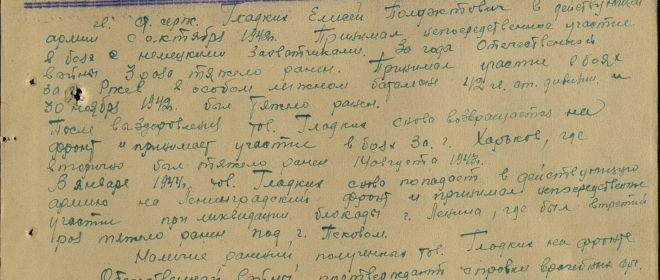 гв. ст. серж. Гладких Елисей Полуэктович в действующей
армии с октября 1942г. Принимал непосредственное участие
в боях с немецкими захватчиками. За года Отечественной
войны 3 раза тяжело ранен. Принимал участие в боях
за г. Ржев в особом лыжном батальоне 42 гв. ст. дивизии и
30 ноября 1942 был тяжело ранен.
После выздоровления тов. Гладких снова возвращается на
фронт и принимает участие в боях за г. Харьков, где
вторично был тяжело ранен 14 августа 1943г.
В январе 1944г. тов. Гладких снова попадает в действующую
армию на Ленинградский фронт и принимал непосредственное
участие при ликвидации блокады г. Ленина, где был в третий
раз тяжело ранен под г. Псковом.
Наличие ранений полученных тов. Гладких на фронте
Отечественной войны подтверждают справки врачебных